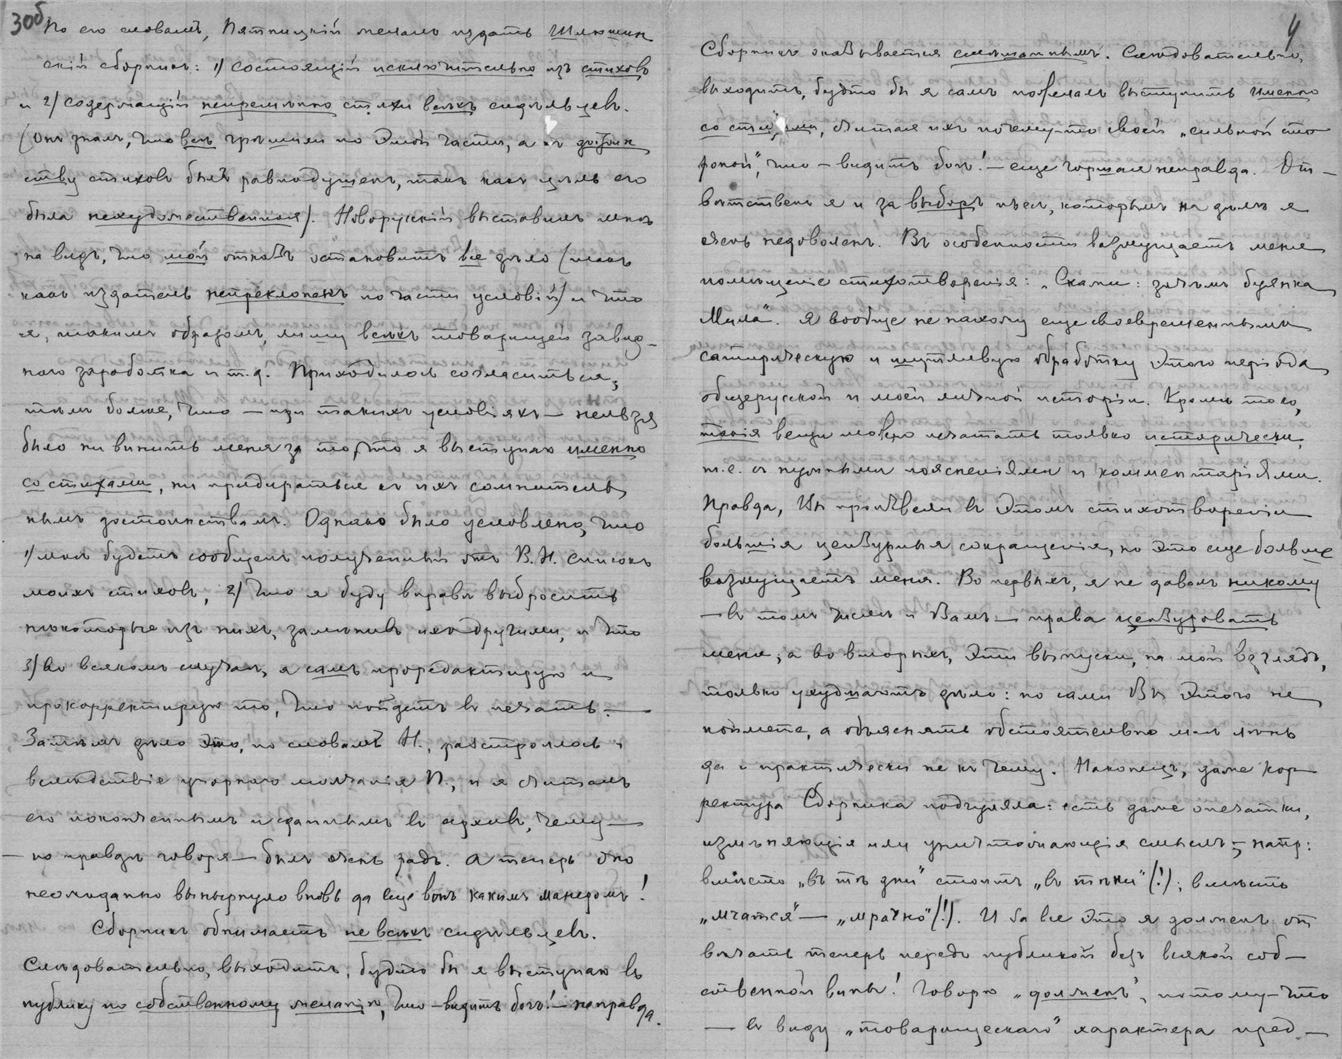 30б
По его словамъ, Пятницкiй желалъ издать Шлюшин
скiй сборникъ: 1) состоящiй исключительно изъ стиховъ
и 2) содержащiй непремѣнно стихи всѣхъ сидѣльцевъ.
(Онъ зналъ, что всѣ грѣшили по этой части, а къ достоин
ству стиховъ былъ равнодушенъ, такъ какъ цѣль его
была нехудожественная). Новорусскiй выставилъ мнѣ
на видъ, что мой отказъ остановитъ всё дѣло (такъ
какъ издатель непреклоненъ по части условiй) и что
я, такимъ образомъ, лишу всѣхъ товарищей завид-
наго заработка и т.д. Приходилось согласиться,
тѣмъ болѣе, что — при такихъ условiяхъ — нельзя
было ни винить меня за то, что я выступаю именно
со стихами, ни придираться къ ихъ сомнитель
нымъ достоинствамъ. Однако было условлено, что
1) мнѣ будетъ сообщенъ полученный отъ В.Н. списокъ
моихъ стиховъ, 2) что я буду вправѣ выбросить
нѣкоторые изъ нихъ, замѣнивъ ихъ другими, и что
3) во всякомъ случаѣ, я самъ проредактирую и
прокорректирую то, что пойдетъ въ печать. —
Затѣмъ дѣло это, по словамъ Н., разстроилось
вслѣдствiе упорнаго молчанiя П., и я считалъ
его поконченнымъ и сданнымъ въ архивъ, чему —
— по правдѣ говоря — былъ очень радъ. А теперь оно
неожиданно вынырнуло вновь да ещё вонъ какимъ манеромъ!
Сборникъ обнимаетъ не всѣхъ сидѣльцевъ.
Слѣдовательно, выходитъ, будто бы я выступаю въ
публику по собственному желанiю, что — видитъ богъ! — неправда.
4
Сборникъ оказывается смѣшаннымъ. Слѣдовательно,
выходитъ, будто бы я самъ пожелалъ выступить именно
со стихами, считая ихъ почему-то своей „сильной сто
роной", что — видитъ богъ! — еще горшая неправда. От-
вѣтственъ я и за выборъ пьесъ, которымъ на дѣлѣ я
очень недоволенъ. Въ особенности возмущаетъ меня
помѣщенiе стихотворенiя: „Скажи: зачѣмъ буянка
Мила". Я вообще не нахожу еще своевременными
сатирическую и шутливую обработку этого перiода
общерусской и моей личной исторiи. Кромѣ того,
такiя вещи можно печатать только исторически,
т.е. съ нужными поясненiями и комментарiями.
Правда, Вы произвели въ этомъ стихотворенiи
большiя цензурныя сокращенiя, но это еще больше
возмущаетъ меня. Во первыхъ, я не давалъ никому
— въ томъ числѣ и Вамъ — права цензуровать
меня, а во вторыхъ, эти выпуски, на мой взглядъ,
только ухудшаютъ дѣло: но сами Вы этого не
поймете, а объяснять обстоятельно мнѣ лѣнь
да и практически не къ чему. Наконецъ, даже кор
ректура Сборника подгуляла: есть даже опечатки,
измѣняющiя или уничтожающiя смыслъ, — напр:
вмѣсто „въ тѣ дни" стоитъ „въ тѣни" (!), вмѣсто
„мчатся" — „мрачно" (!). И за все это я долженъ от
вѣчать теперь передъ публикой безъ всякой соб-
ственной вины! Говорю „долженъ", потому-что
— въ виду „товарищескаго" характера пред-